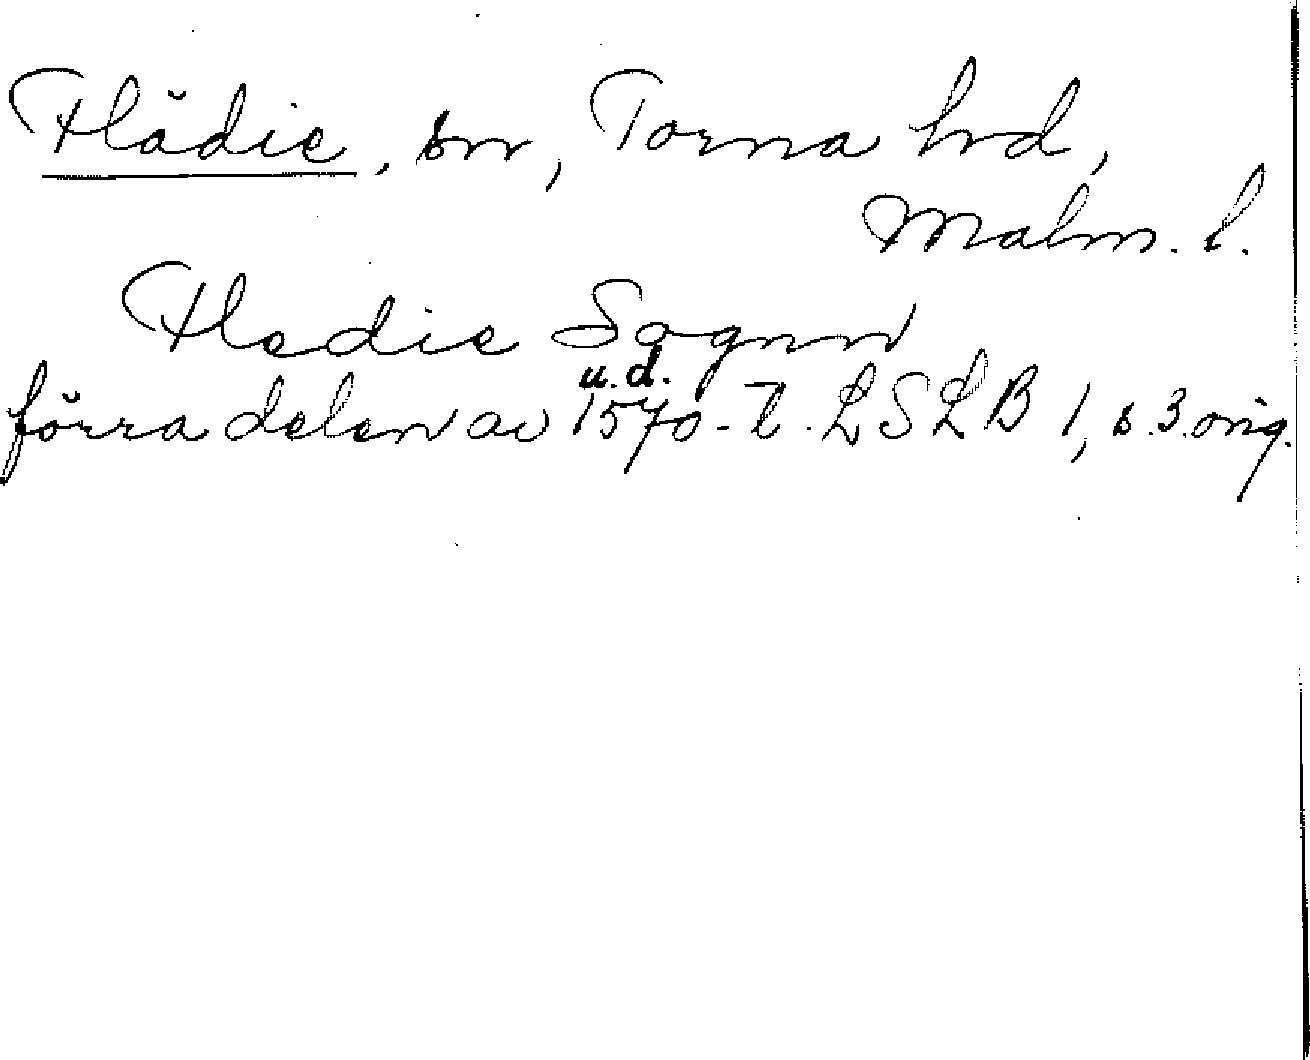 Flädie, sn, Torna hd,
Malm. l.
Fledie Sognn
u.d.
förra delen av 1570-t. LSLB 1, s. 3. orig.